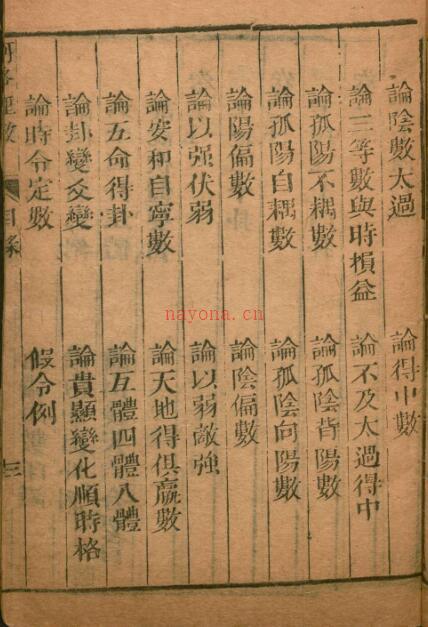 論陰數太過　論得中數
論三等數與時損益　論不及太過得中
論孤陽不耦數　論孤陰背陽數
論孤陽自耦數　論孤陰向陽數
論陽偏數　論陰偏數
論以强伏弱　論以弱敵強
論安和自寧數　論天地得俱贏數
論五命得卦　論互體四體八體
論卦變爻變　論貴顯變化順時格
論時令定數　假令例
目錄　三
nayona.cn